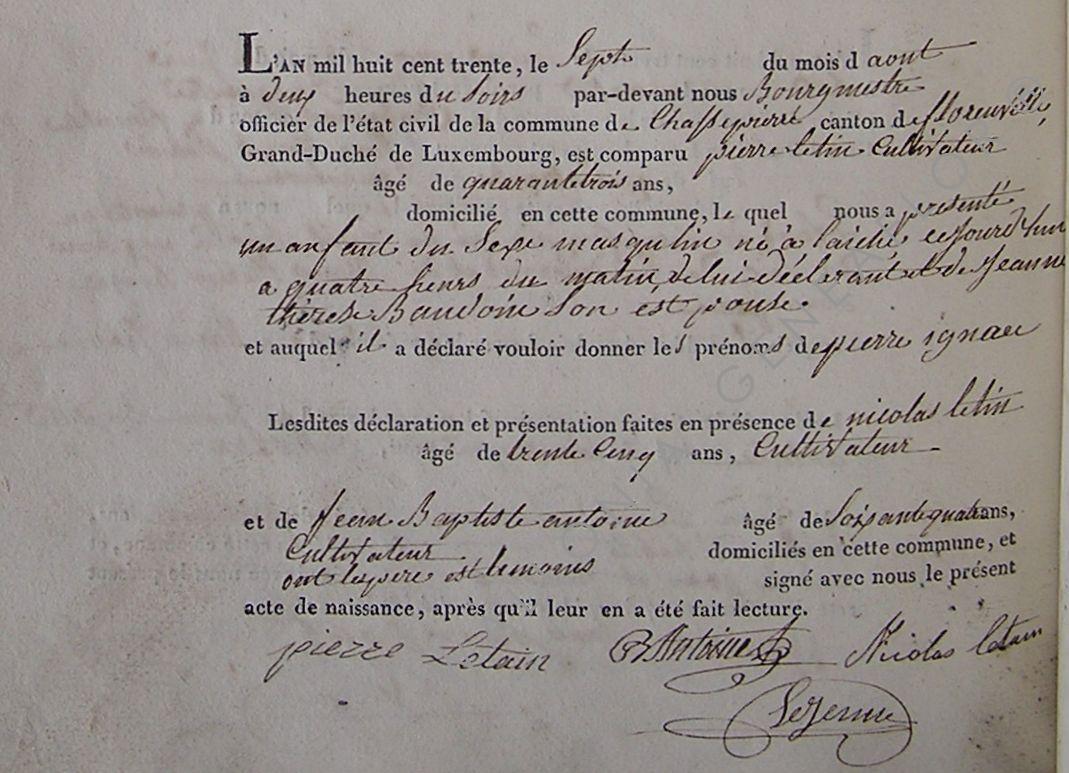 L'AN mil huit cent trente, le Sept du mois d aout
à deux heures du Soirs par-devant nous Bourgmestre
officier de l'état civil de la commune de Chassepierre canton de florenville
Grand-Duché de Luxembourg, est comparu pierre letin Cultivateur
âgé de quarantetrois ans,
domicilié en cette commune, le quel nous a presenté
un anfant du Sexe masqulin né à laiche cejourd'hui
a quatre heurs du matin, de lui déclarant et de Jeanne
thérese Baudoin Son est pouse
et auquel il a déclaré vouloir donner les prénoms de pierre ignace
Lesdites déclaration et présentation faites en présence de nicolas letin
âgé de trente Cinq ans, Cultivateur
et de jean Baptiste antoine âgé de Soixantequatre ans,
Cultivateur domiciliés en cette commune, et
ont lepere est temoins signé avec nous le présent
acte de naissance, après qu'il leur en a été fait lecture.
pierre Letain Antoine Nicolas letain